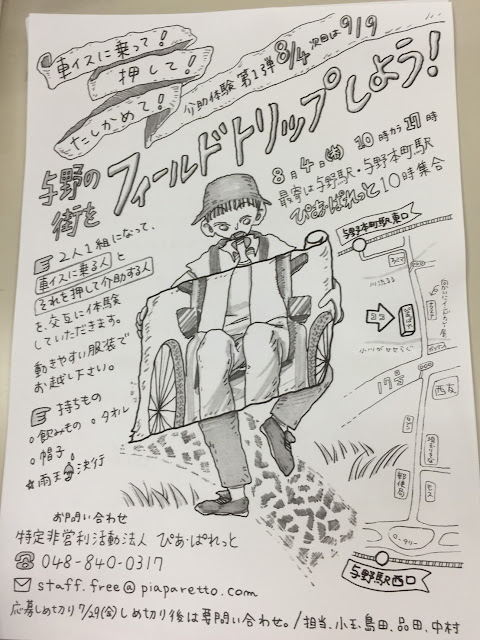 車イスに乗って!
押して!
たしかめて!
介助体験 第1弾 8/4 次回は9/9
与野の
街を
フィールドトリップしよう!
8月4日(木) 10時から17時
最寄は与野駅・与野本町駅
ぴあ・ぱれっと10時集合
☞ 2人1組になって、
車イスに乗る人と
それを押して介助する人
を、交互に体験
していただきます。
動きやすい服装で
お越し下さい。
☞ 持ちもの
○飲みもの ○タオル
○帽子
★雨天決行
与野本町駅東口
17号
西友
郵便局
モス
ロータリー
与野駅西口
お問い合わせ
特定非営利活動法人 ぴあ・ぱれっと
☎ 048-840-0317
✉ staff.free@piaparetto.com
応募しめ切り7/29(金)しめ切り後は要問い合わせ。/担当、小玉、島田、品田、中村